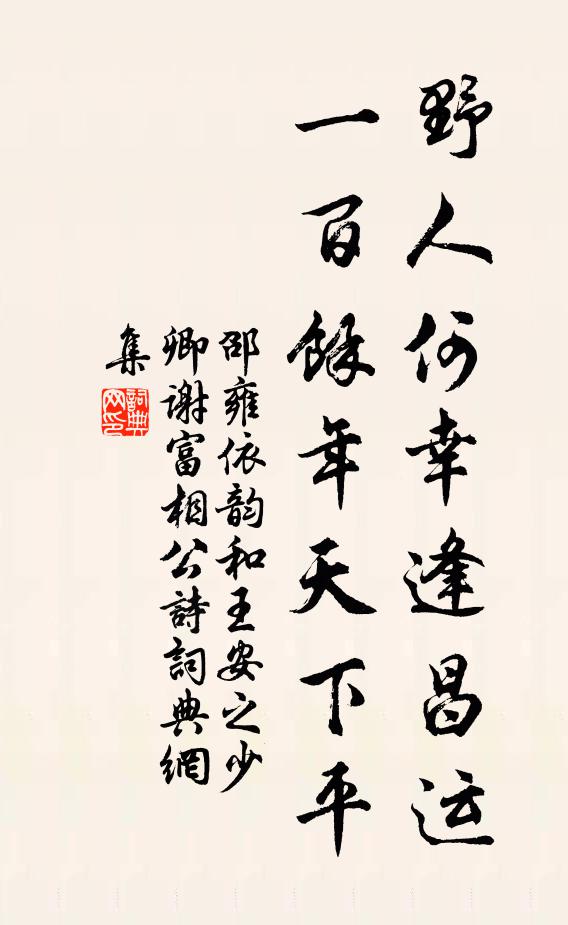 野人何幸逢昌运
一百餘年天下平
邵雍依韵和王安之少
卿谢富相公詩詞典網
集
詞典
网印